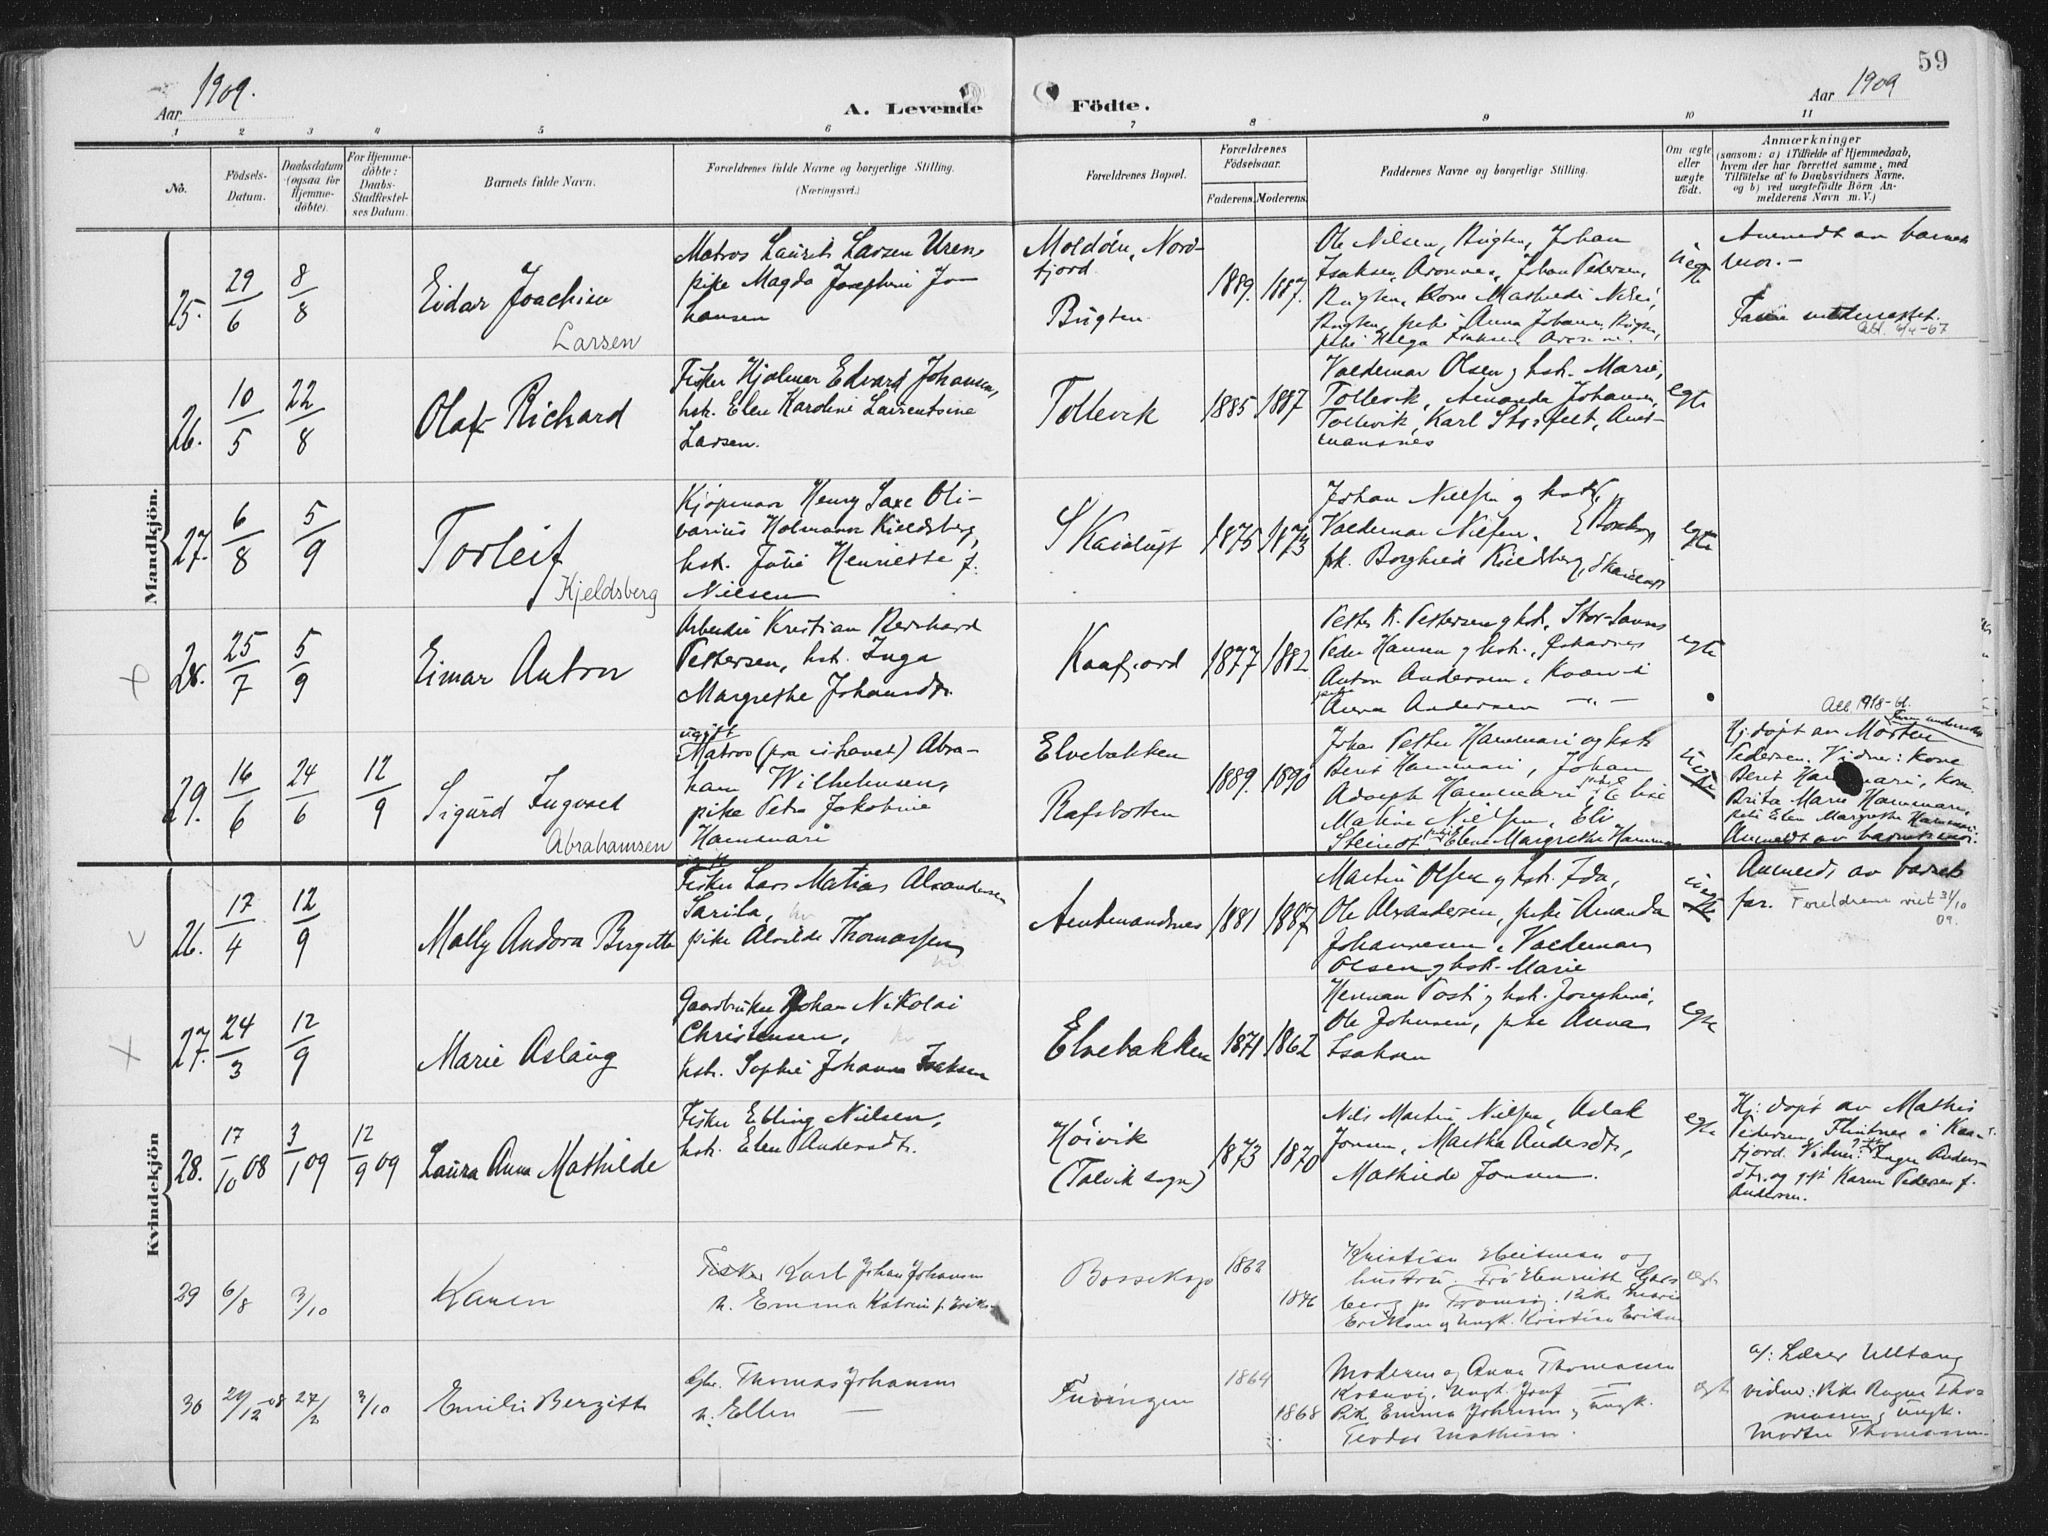 59
Aar 1909.
A. Levende Födte.
Aar 1909
1 2 3 4 5 6 7 8 9 10 11
No.
Födsels-
Datum.
Daabsdatum
(ogsaa for
Hjemme-
døbte).
For Hjemme-
døbte:
Daabs-
Stadfæstel-
ses Datum.
Barnets fulde Navn.
Forældrenes fulde Navne og borgerlige Stilling.
(Næringsvei.)
Forældrenes Bopæl.
Forældrenes
Fødselsaar.
Faderens.
Moderens.
Faddernes Navne og borgerlige Stilling.
Om ægte
eller
uægte
født.
Anmærkninger
(saasom: a) i Tilfælde af Hjemmedaab,
hvem der har forrettet samme, med
Tilføielse af to Daabsvidners Navne,
og b) ved uægtefødte Börn An-
melderens Navn m. V.)
Mandkjön.
25. 29/6 8/8
Eidar Joachim
Larsen
Matros Laurits Larsen Uren
pike Magda Josephine Jo-
hansen
Moldöen, Nord-
fjord
Bugten
1889. 1887.
Ole Nilsen, Bugten, Johan
Isaksen, Aronnes, Johan Pedersen,
Bugten, Kone Mathilde
Bugten, pike Anna Johans. Bugten,
pike Helga Isaksen Aronnes.
uegte
Anmeldt av barnets
mor.-
26. 10/5 22/8
Olaf Richard
Fisker Hjalmar Edvard Johansen,
hst. Elen Karoline Laurentine
Larsen.
Tollevik
1885 1887
Valdemar Olsen og hst. Marie,
Tollevik, Amanda Johansen,
Tollevik, Karl Storfelt, Amt-
mansnes
egte
27. 6/8 5/9
Torleif
Kjeldsberg
Kjöpman Henry Saxe Oli-
varius Holmann Kieldsberg,
hst. Julie Henriette f.
Nielsen
Skaidugt
1875 1873
Johan Nielsen og hst,
Valdemar Nielsen,
pk. Borghild Kieldsberg,
egte
28. 25/7 5/9
Einar Anton
Arbeider Kristian Bernhard
Pettersen, hst. Inga
Margrethe Johansdtr.
Kaafjord
1877 1882
Petter K. Pettersen og hst.,
Peder Hansen og hst.,
Anton Andersen, Kvænvik
pike Anna Andersen -"-
egte
29. 16/6 24/6 12/9
Sigurd Ingvald
Abrahamsen
ugift
Matros (fra ishavet) Abra-
ham Wilhelmsen,
pike Petra Jakobine
Hammari
Elvebakken
Rafsbotten
1889. 1890
Johan Petter Hammari og hst.
Berit Hammari, Johan
Adolph Hammari,
Maline Nielsen, Eli
Steindt pike Elen Margrethe Hammari
uegte
Hj: döpt av Morten
Pedersen. Vidner: kone
Berit Hammari, kone
Brita Marie Hammari,
pike Elen Margrethe Hammari.
Anmeldt av barnets mor.
Kvindekjön
26. 17/4 12/9
Molly Andora Bergitte
Fisker Lars Matias Alexandersen
Sarila,
pike Alvilde Thomassen
Amtmandsnes
1881 1887
Martin Olsen og hst. Ida,
Ole Alexandersen, pike Amanda
Johannesen, Valdemar
Olsen og hst. Marie
uegte
Anmeldt av barnets
far. Foreldrene viet 31/10
09.
27. 24/3 12/9
Marie Aslaug
Gaardbruker Johan Nikolai
Christensen,
hst. Sophie Johanna Isaksen
Elvebakken
1871 1862
Herman Posti og hst. Josephine,
Ole Johnsen, pike Anna
Isaksen
egte
28. 17/10 08 3/1 09 12/9 09
Laura Anna Mathilde
Fisker Elling Nielsen,
hst. Elen Andersdtr.
Höivik
(Talvik sogn)
1873 1870
Nils Martin Nielsen, Aslak
Jonsen, Martha Andersdtr,
Mathilde Jonsen.
egte
Hj: döpt av Mathis
Pedersen, Flintnes i Kaa-
fjord. Vidner: Inger Anders-
dtr. og gift Karen Pedersen f.
Andersen.
29 6/8 3/10
Karen
Fisker Karl Johan Johansen
h. Emma Katrine f. Eriks.
Bossekop
1862
1876
Kristian Heitman og
hustru. Fru Henriette
berg pr Tromsø. Pike Marie
Eriksen og Ungk. Kristian Eriksen
ægte
30 29/12 08 27/2 3/10
Emilie Bergitte
Gbr. Thomas Johansen
h. Ellen —
Tuvingen
1864
1868
Moderen og Anna Thomassen
Kvænvig. Ungk. Josef —
Pik. Emma Johnsen og Ungk.
Teodor Mathisen.
ægte
a/: Lærer Ulltang
vidner: Pike Ragna Tho-
massen og Ungk.
Morten Thomassen